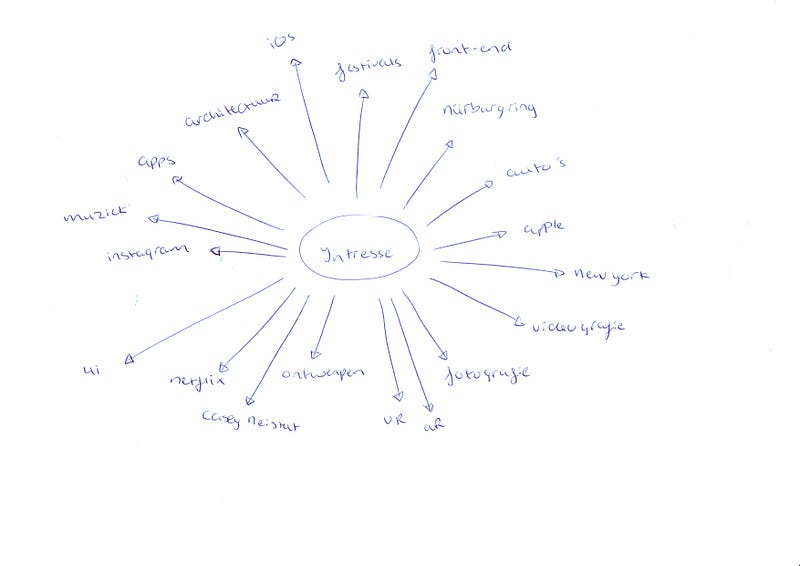 ios
festivals
front-end
architectuur
nürburgring
apps
auto's
muziek
apple
instagram
Intresse
new york
videografie
ui
netflix
ontwerpen
fotografie
casey neistat
VR
aR